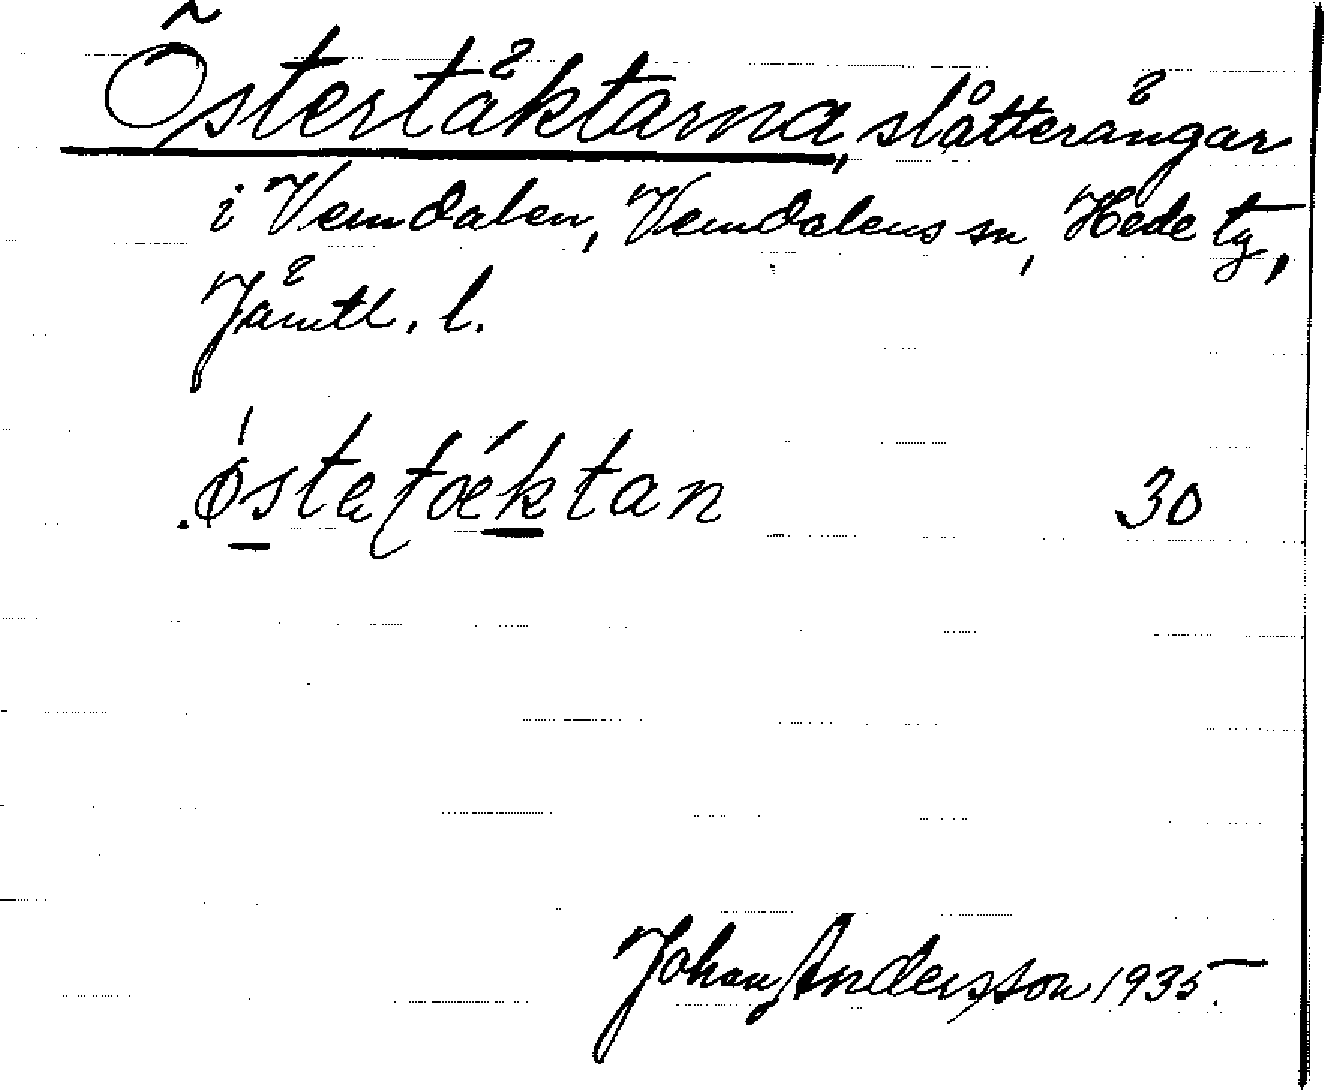 Östertäktarna, slåtterängar
i Vemdalen, Vemdalens sn, Hede tg,
Jämtl. l.
.østetǽktan 30
Johan Andersson 1935.